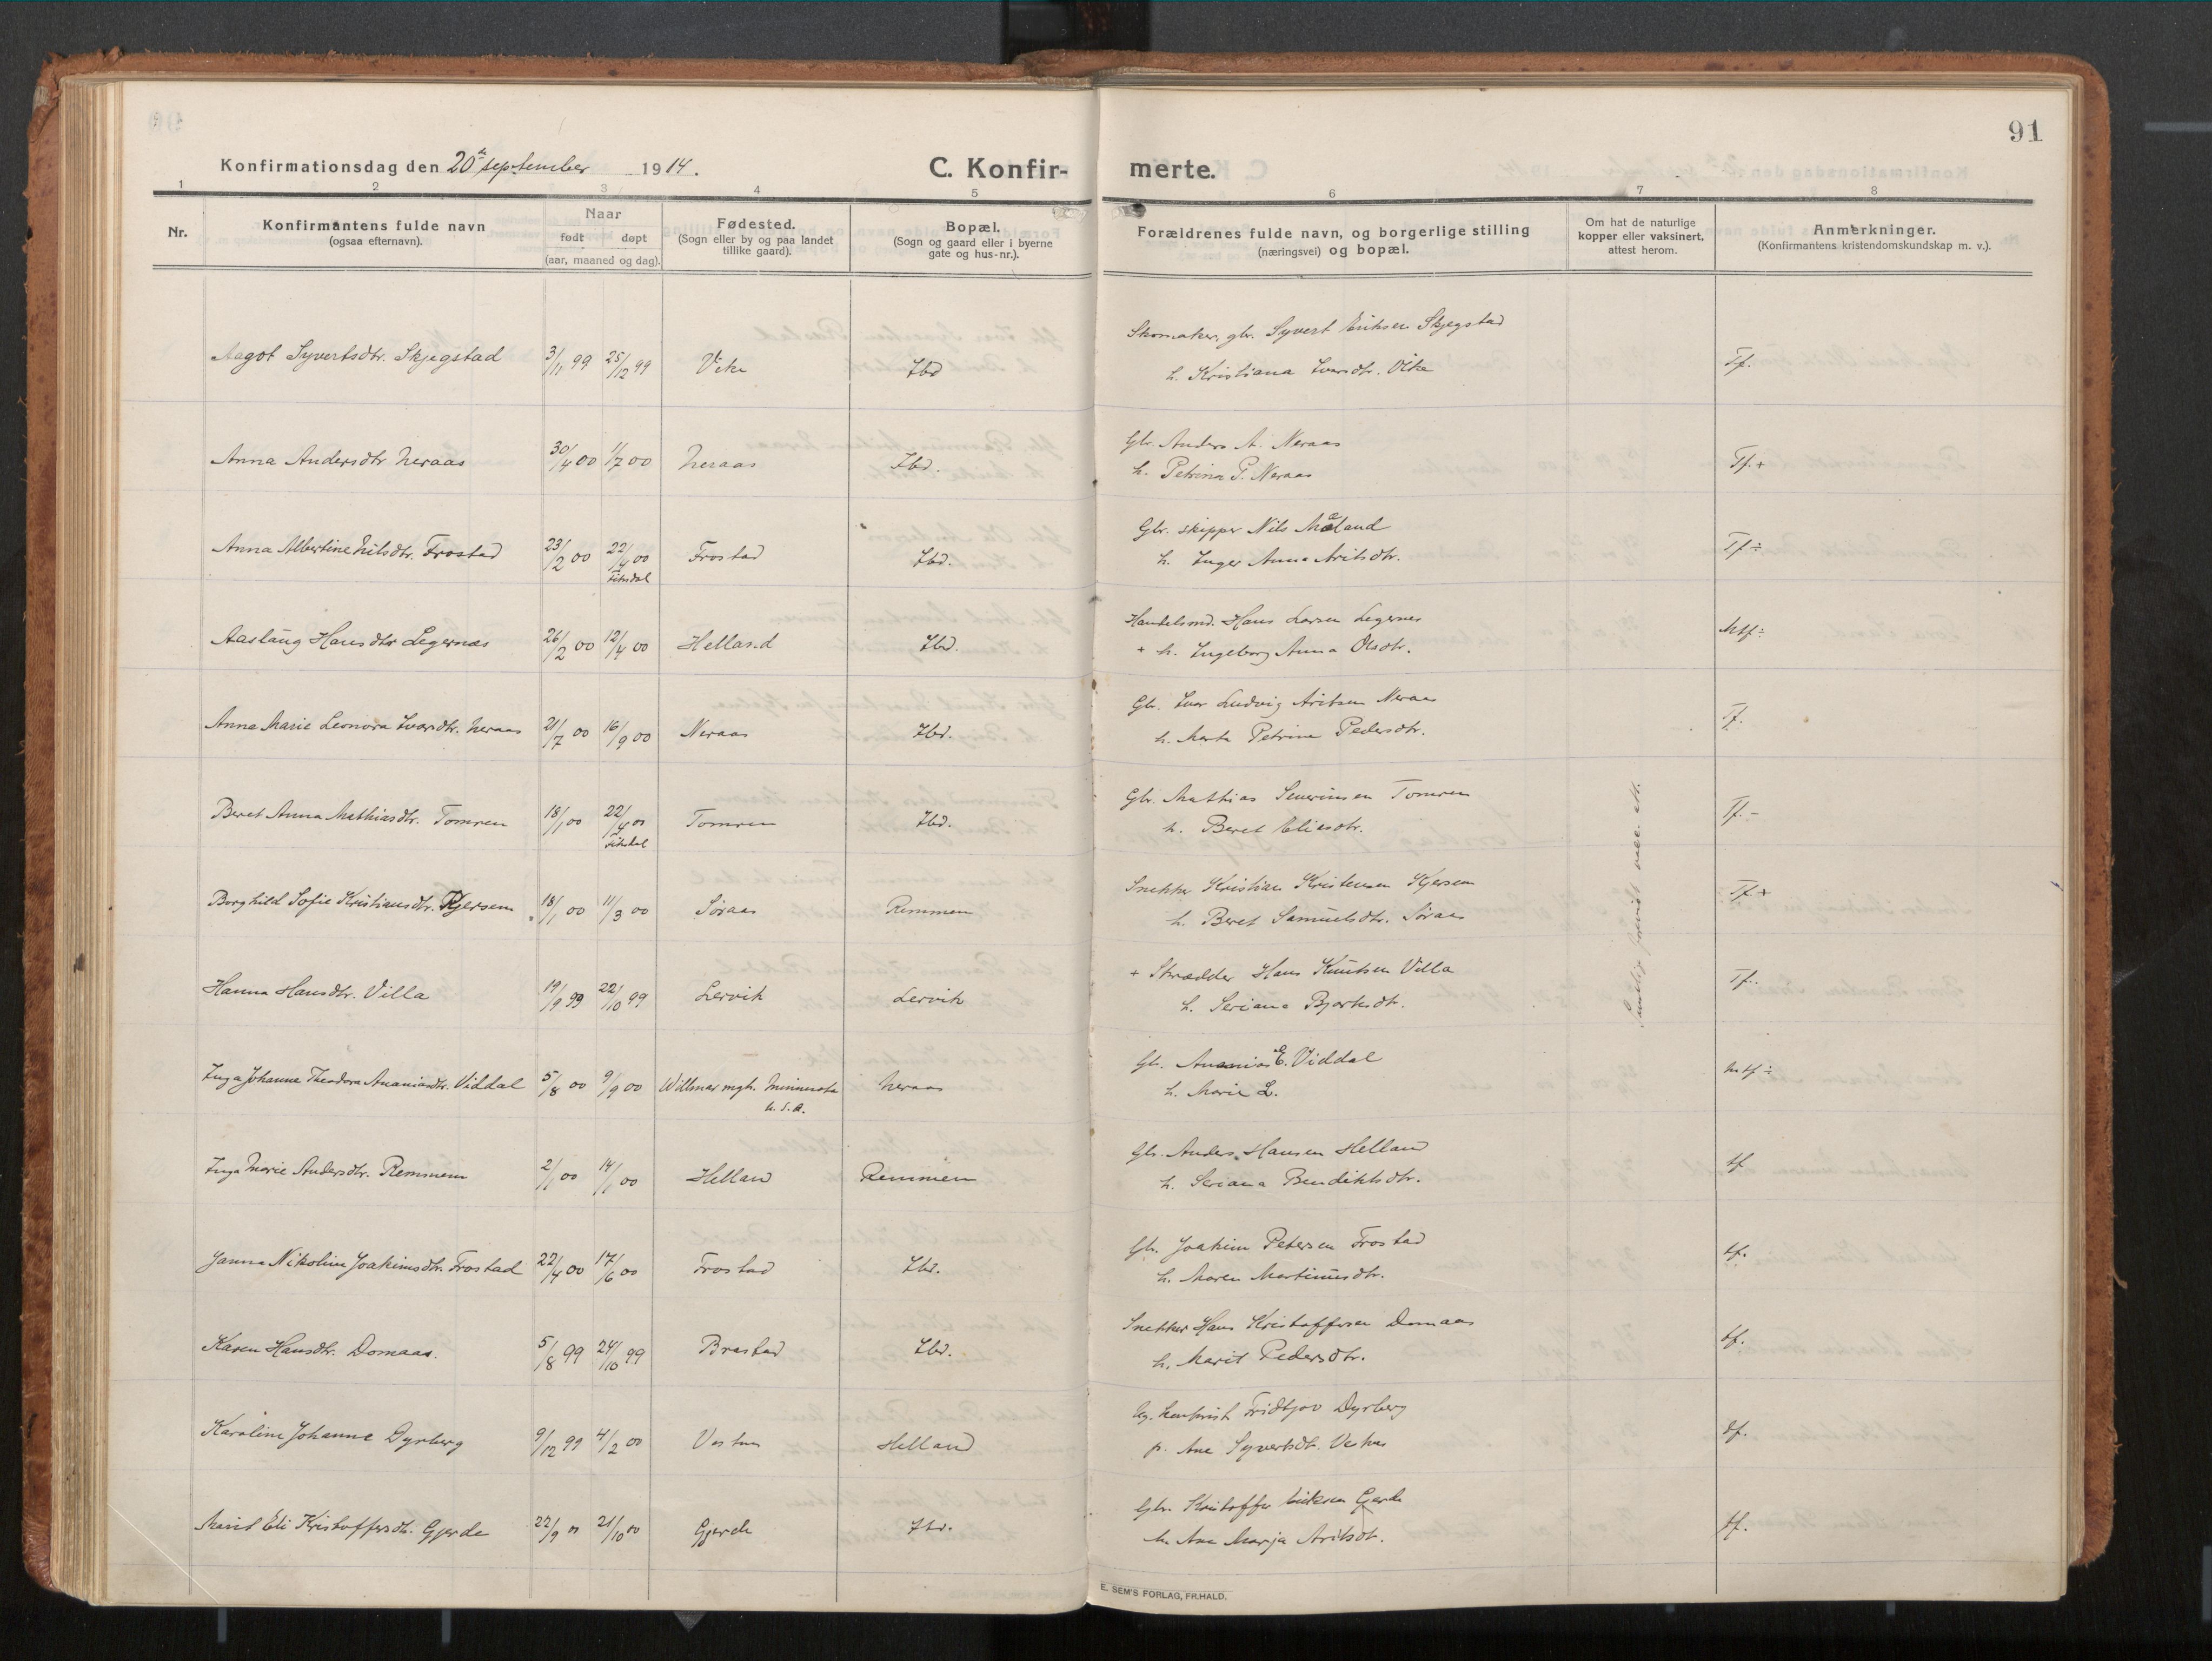 91
Konfirmationsdag den 20de september 1914.
C. Konfir- merte.
1 2 3 4 5 6 7 8
Nr.
Konfirmantens fulde navn
(ogsaa efternavn).
Naar
født døpt
(aar, maaned og dag).
Fødested.
(Sogn eller by og paa landet
tillike gaard).
Bopæl.
(Sogn og gaard eller i byerne
gate og hus-nr.).
Forældrenes fulde navn, og borgerlige stilling
(næringsvei) og bopæl.
Om hat de naturlige
kopper eller vaksinert,
attest herom.
Anmerkninger.
(Konfirmantens kristendomskundskap m. v.).
Skomaker, gbr. Syvert Eriksen Skjegstad
Aagot Syvertsdtr. Skjegstad 3/11 99 25/12 99 Vike Ibd Tf.
h. Kristiana Ivarsdtr. Vike
Gbr. Anders A. Neraas
Anna Andersdtr Neraas 30/4 00 1/7 00 Neraas Ibd. Tf.+
h. Petrina P. Neraas
Gbr. skipper Nils Mæland
Anna Albertine Nilsdtr. Frostad 23/2 00 22/4 00 Frostad Ibd. Tf÷
Fiksdal
h. Inger Anna Aritsdtr.
Handelsmd. Hans Larsen Legernes
Aaslaug Hansdtr Legernæs 26/2 00 12/4 00 Helland Ibd. Mtf÷
+ h. Ingeborg Anna Olsdtr.
Gbr. Ivar Ludvig Aritsen Neraas
Anne Marie Leonora Ivarsdtr. Neraas 21/7 00 16/9 00 Neraas Ibd. Tf.
h. Marte Petrine Pedersdtr.
Gbr. Mathias Severinsen Tomren
Beret Anna Mathiasdtr. Tomren 18/1 00 22/4 00 Tomren Ibd. Tf.-
Fiksdal
h. Beret Eliasdtr.
Snekker Kristian Kristensen Kjersem
Borghild Sofie Kristiansdtr. Kjersem 18/1 00 11/3 00 Søraas Remmen Tf.+
h. Beret Samuelsdtr. Søraas
+ Skrædder Hans Knutsen Villa
Hanna Hansdtr. Villa 19/9 99 22/10 99 Lervik Lervik Tf.
h. Seriana Bjørksdtr.
Gbr. Ananias E. Viddal
Inga Johanne Theodora Ananiasdtr. Viddal 5/8 00 9/9 00 Willmar mgh. Minnesota Neraas Mtf÷
U. S. A.
h. Marie L.
Gbr. Anders Hansen Helland
Inga Marie Andersdtr. Remmem 2/1 00 14/1 00 Helland Remmen tf
h. Seriana Bendiktsdtr.
Gbr. Joakim Petersen Frostad
Janna Nikoline Joakimsdtr. Frostad 22/4 00 17/6 00 Frostad Ibd. tf.
h. Maren Martinusdtr.
Snekker Hans Kristoffersen Domaas
Karen Hansdtr. Domaas. 5/8 99 24/10 99 Brastad Ibd. tf.
h. Marit Pedersdtr.
Ug. Fridtjov Dyrberg
Karoline Johanne Dyrberg 9/12 99 4/2 00 Vestnes Helland df.
p. Ane Syvertsdtr. Vestnes
Gbr. Kristoffer Eriksen Gjerde
Marit Eli Kristoffersdtr. Gjerde 22/9 00 21/10 00 Gjerde Ibd. tf.
h. Ane Marja Aritsdt.
E. SEM'S FORLAG, FR.HALD.